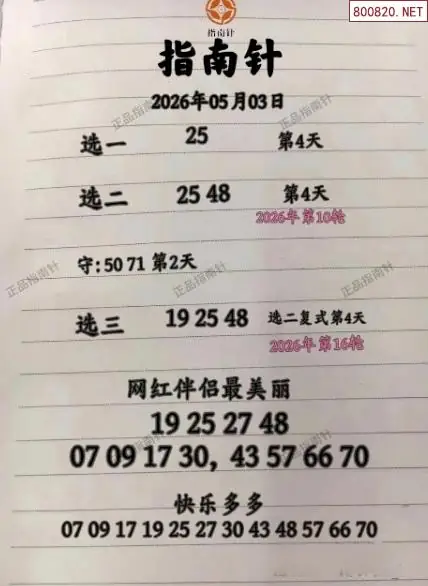 800820.NET
指南针
指南针
2026年05月03日
选一 25 第4天
选二 25 48 第4天
2026年第10轮
守:50 71 第2天
选三 19 25 48 选二复式第4天
2026年第16轮
网红伴侣最美丽
19 25 27 48
07 09 17 30, 43 57 66 70
快乐多多
07 09 17 19 25 27 30 43 48 57 66 70
正品指南针
正品指南针
正品指南针
正品指南针
正品指南针
正品指南针
正品指南针